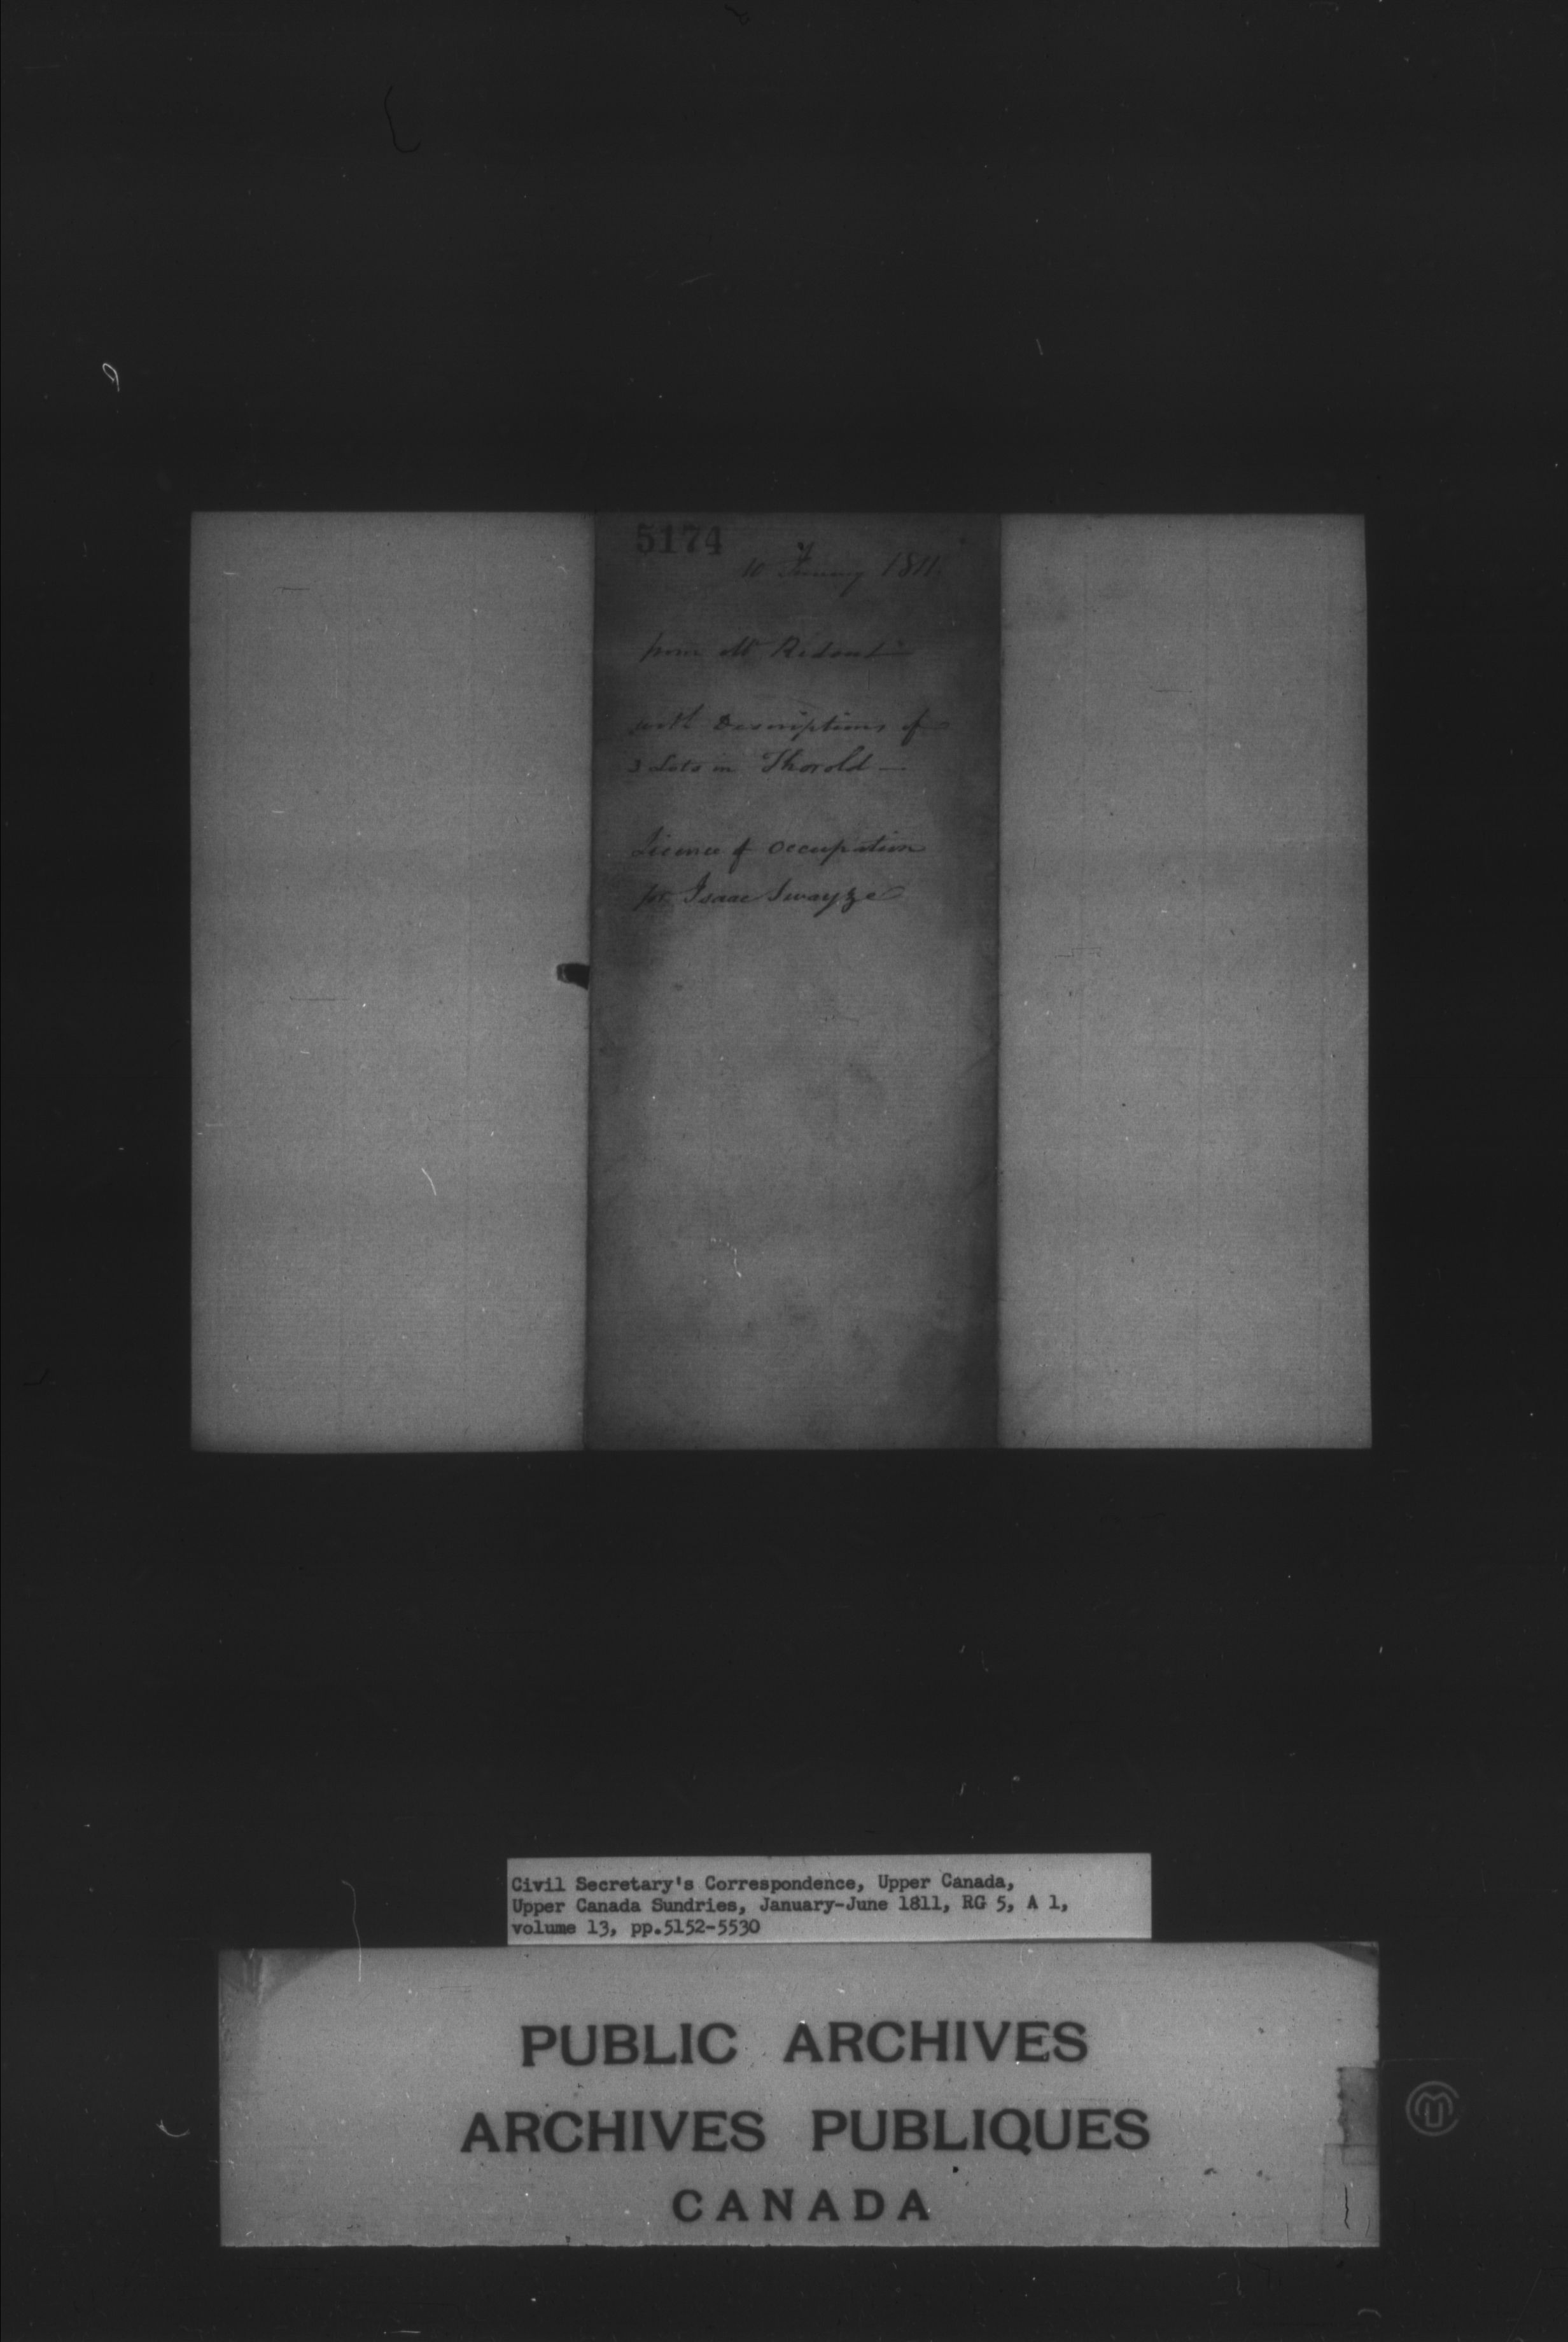 5174
10 January 1811.
from Mr Ridout
with Descriptions of
3 Lots in Thorold —
Licence of Occupation
for Isaac Swayze
Civil Secretary's Correspondence, Upper Canada,
Upper Canada Sundries, January-June 1811, RG 5, A 1,
volume 13, pp.5152-5530
PUBLIC ARCHIVES
ARCHIVES PUBLIQUES
CANADA